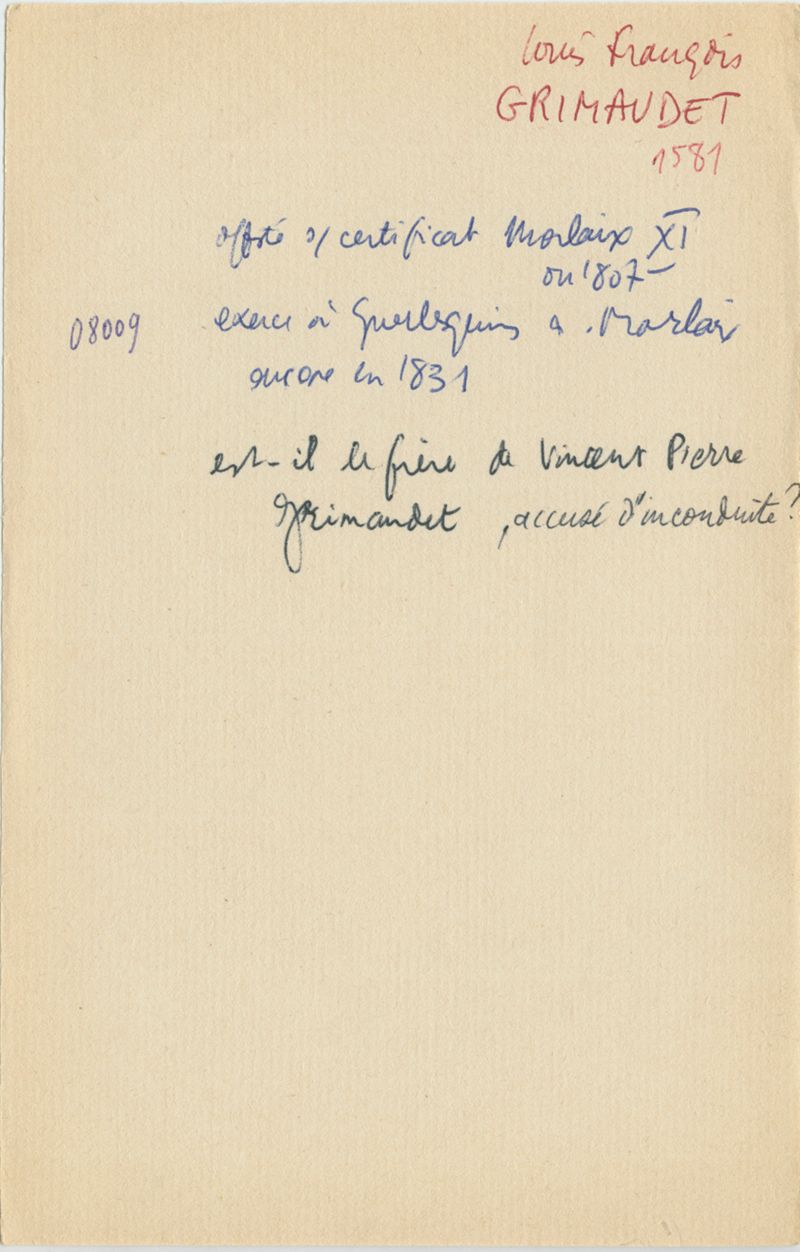 Louis François
GRIMAUDET
1581
s/ certificat Morlaix XI
ou 1807 -
08009 exerce à Guerlesquin à Morlaix
encore en 1831
est-il le frère de Vincent Pierre
Grimaudet, accusé d'inconduite?